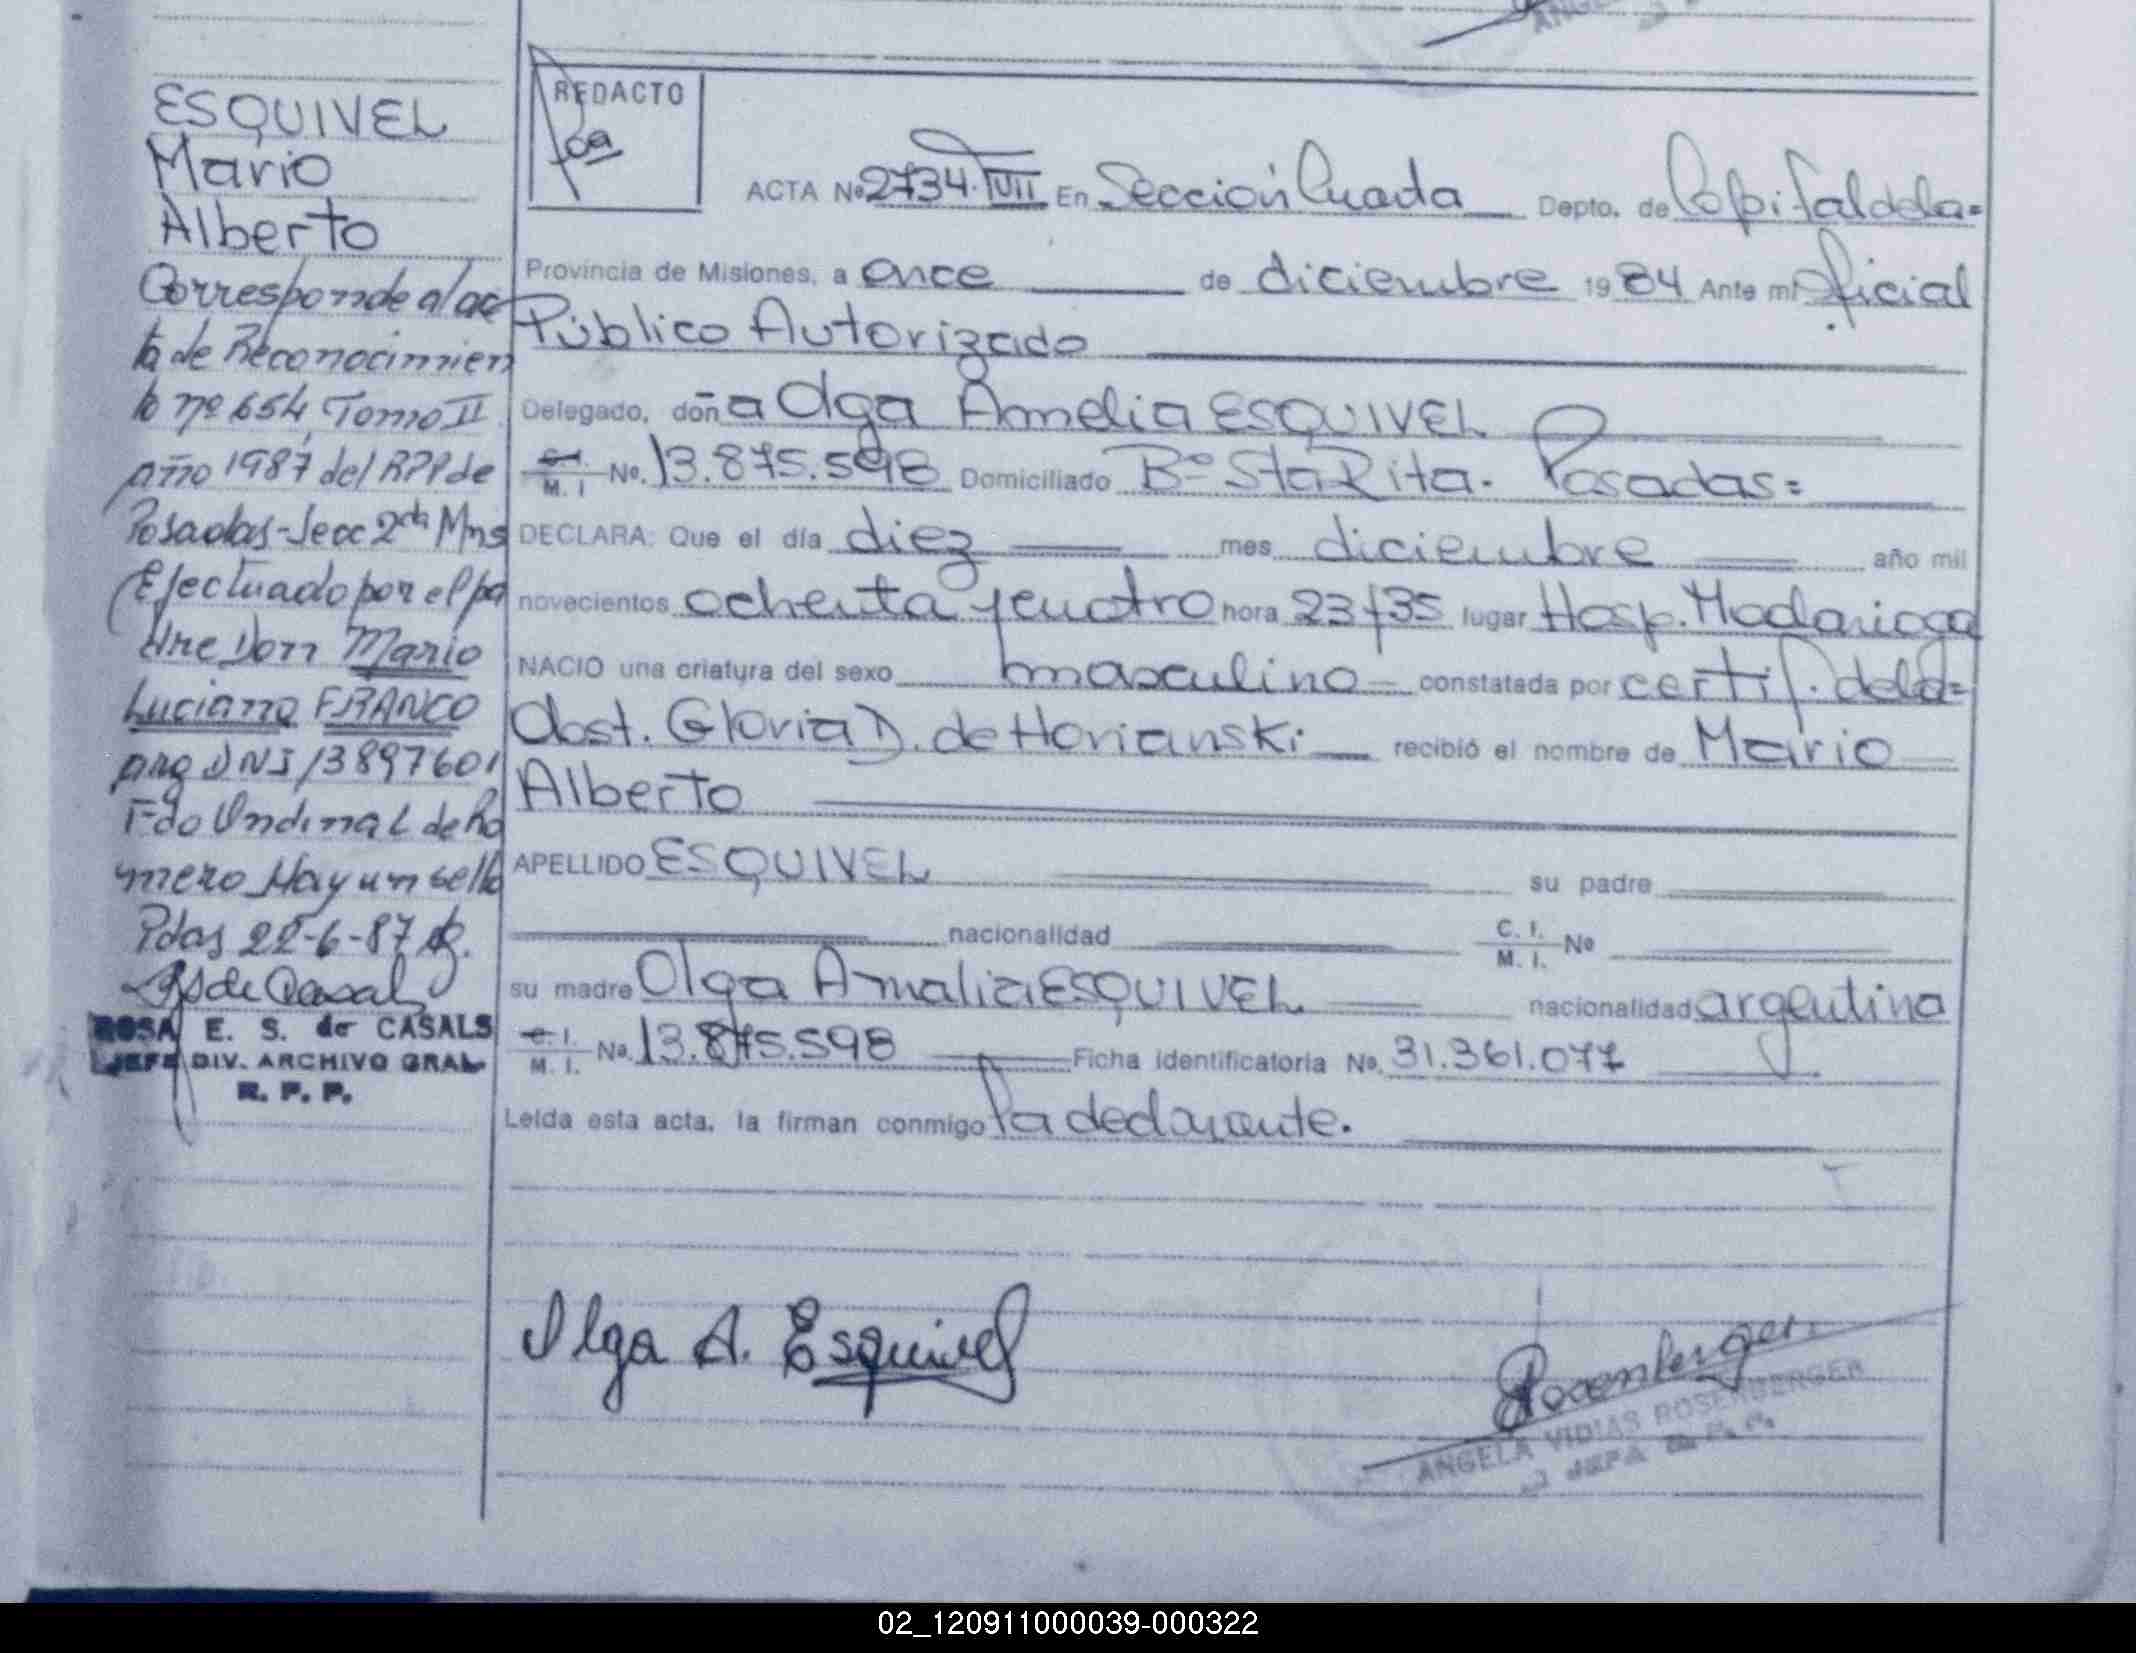 ESQUIVEL
Mario
Alberto
Corresponde al ac
ta de Reconocimien
to nº 654, Tomo II
año 1987 del RPP de
Posadas-Secc 2da Mns
Efectuado por el pa
dre Don Mario
Luciano FRANCO
arg DNI 13897601
Fdo Undina L de Ro
mero Hay un sello
Pdas 22-6-87
ROSA E. S. de CASALS
JEFE DIV. ARCHIVO GRAL.
R. P. P.
REDACTO
ACTA Nº 2734. TVII En Sección Cuarta Depto. de Capital de la=
Provincia de Misiones, a once de diciembre 1984 Ante mi Oficial
Público Autorizado
Delegado, doña Olga Amelia ESQUIVEL
C.I. M. I Nº. 13.875.598 Domiciliado Bº Sta Rita. Posadas=
DECLARA: Que el día diez mes diciembre año mil
novecientos ochenta y cuatro hora 23y35 lugar Hosp. Madariaga
NACIO una criatura del sexo masculino constatada por certif. de la=
Obst. Gloria D. de Horianski recibió el nombre de Mario
Alberto
APELLIDO ESQUIVEL su padre
nacionalidad C. I. M. I. Nº
su madre Olga Amalia ESQUIVEL nacionalidad argentina
C. I. M. I. Nº. 13.875.598 Ficha identificatoria Nº. 31.361.077
Leída esta acta, la firman conmigo la declarante.
Olga A. Esquivel
Rosenberger
ANGELA VIDIAS ROSENBERGER
JEFA R. P. P.
02_120911000039-000322